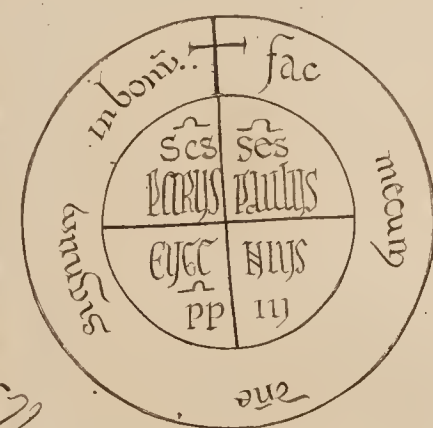 fac mecum dñe signum in bonũ..
scs scs
PETRUS PAULUS
EUGE NIUS
pp iij